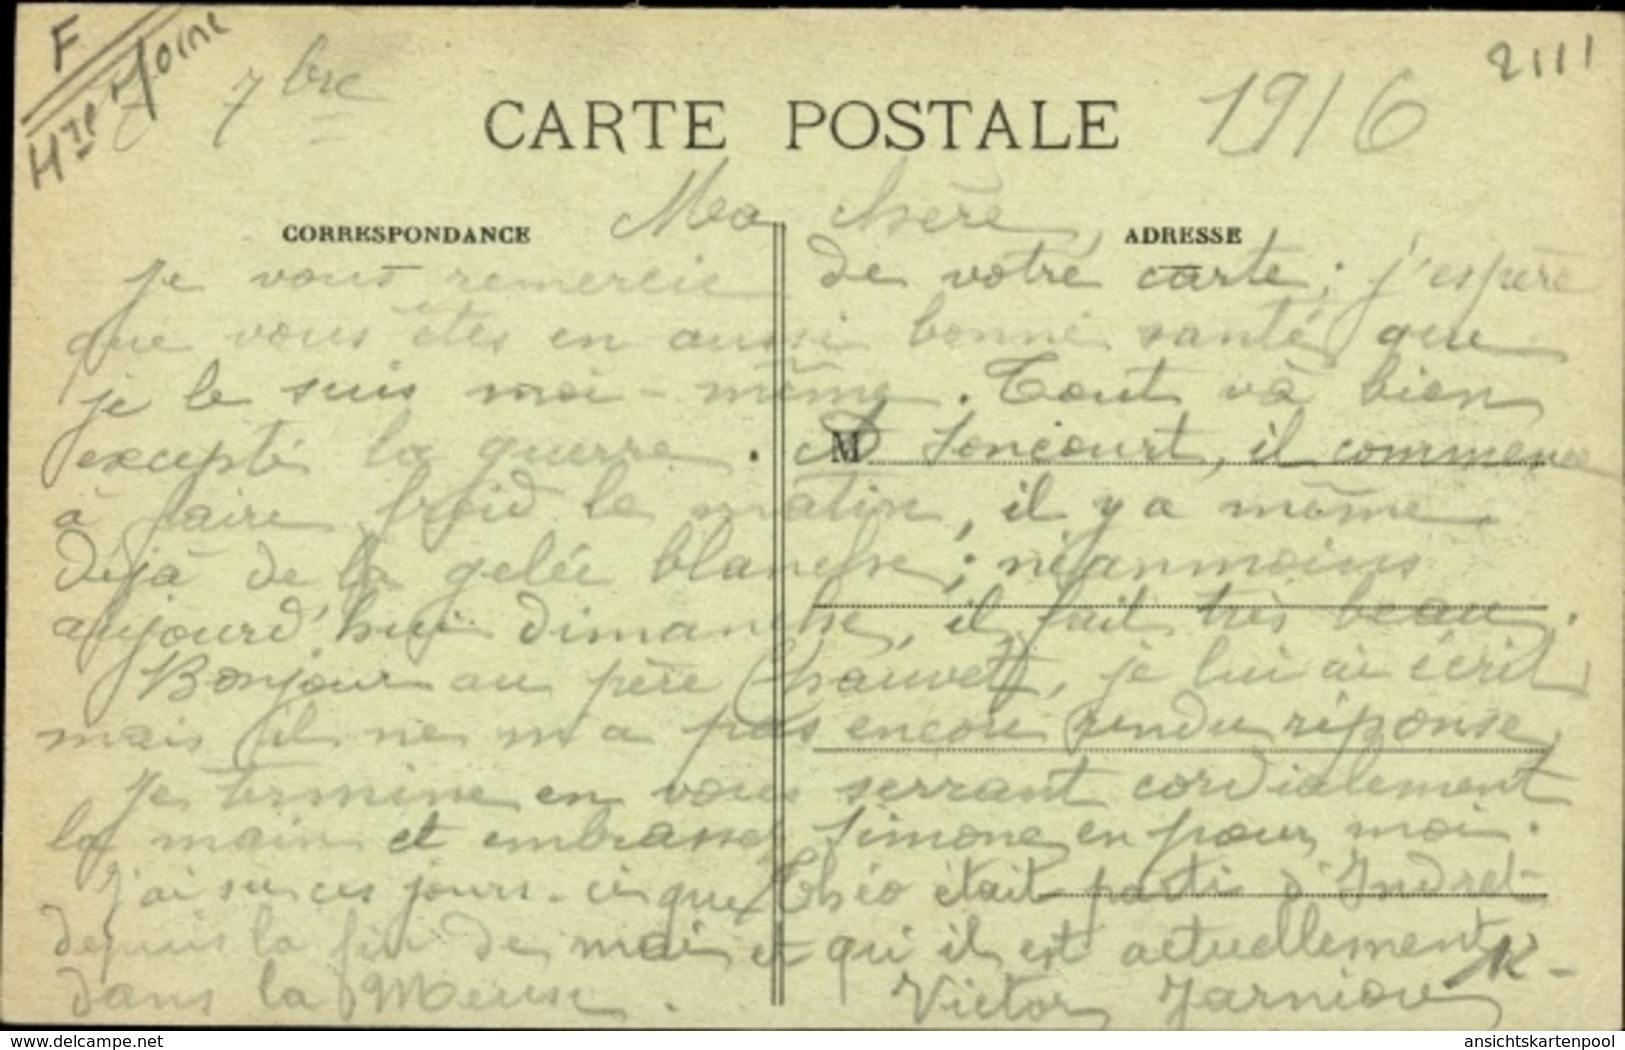 F
7bre
CARTE POSTALE
1916
2111
Ma chère,
CORRESPONDANCE
ADRESSE
Je vous remercie de votre carte ; j'espère
que vous êtes en aussi bonne santé que
je le suis moi-même. Tout va bien
excepté la guerre. A Soncourt, il commence
M
à faire froid le matin, il y a même
déjà de la gelée blanche ; néanmoins
aujourd'hui dimanche, il fait très beau.
Bonjour au père Chauvet, je lui ai écrit,
mais il ne m'a pas encore rendu réponse,
Je termine en vous serrant cordialement
la main et embrassez Simone en pour moi.
J'ai su ces jours-ci que Théo était parti d'Indret
depuis la fin de mai et qu'il est actuellement
dans la Meuse.
Victor
www.delcampe.net
ansichtskartenpool